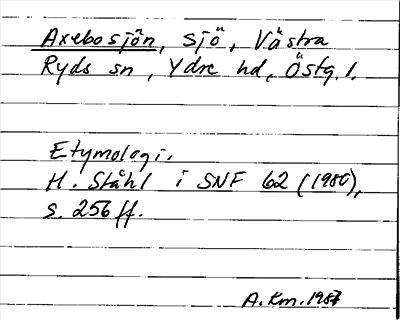 Axebosjön, sjö, Västra
Ryds sn, Ydre hd, Östg. l.
Etymologi.
H. Ståhl i SNF 62 (1980),
s. 256 ff.
A. Km. 1987